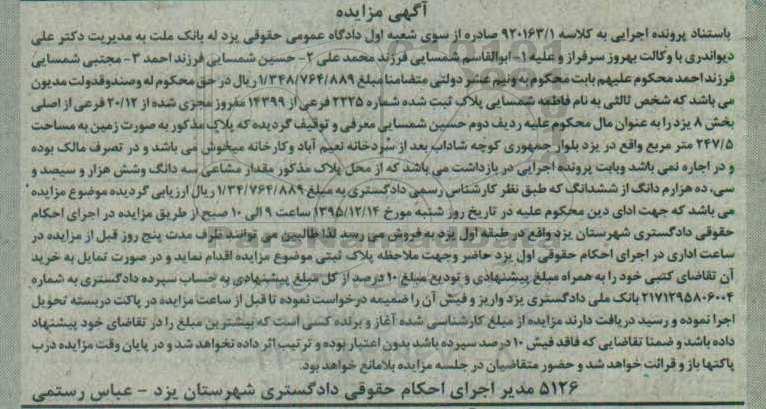 آگهی مزایده
باستناد پرونده اجرایی به کلاسه ۹۲۰۱۶۳/۱ صادره از سوی شعبه اول دادگاه عمومی حقوقی یزد له بانک ملت به مدیریت دکتر علی
دیواندری با وکالت بهروز سرفراز و علیه ۱- ابوالقاسم شمسایی فرزند محمد علی ۲- حسین شمسایی فرزند احمد ۳- مجتبی شمسایی
فرزند احمد محکوم علیهم بابت محکوم به ونیم عشر دولتی متضامنا مبلغ ۱/۳۴۸/۷۶۴/۸۸۹ ریال در حق محکوم له وصندوقدولت مدیون
می باشد که شخص ثالثی به نام فاطمه شمسایی پلاک ثبت شده شماره ۲۲۲۵ فرعی از ۱۴۳۹۹ مفروز مجزی شده از ۲۰/۱۲ فرعی از اصلی
بخش ۸ یزد را به عنوان مال محکوم علیه ردیف دوم حسین شمسایی معرفی و توقیف گردیده که پلاک مذکور به صورت زمین به مساحت
۲۴۷/۵ متر مربع واقع در یزد بلوار جمهوری کوچه شاداب بعد از سردخانه نعیم آباد وکارخانه میخوش می باشد و در تصرف مالک بوده
و در اجاره نمی باشد وبابت پرونده اجرایی در بازداشت می باشد که از محل پلاک مذکور مقدار مشاعی سه دانگ وشش هزار و سیصد و
سی، ده هزارم دانگ از ششدانگ که طبق نظر کارشناس رسمی دادگستری به مبلغ ۱/۳۴/۷۶۴/۸۸۹ ریال ارزیابی گردیده موضوع مزایده
می باشد که جهت ادای دین محکوم علیه در تاریخ روز شنبه مورخ ۱۳۹۵/۱۲/۱۴ ساعت ۹ الی ۱۰ صبح از طریق مزایده در اجرای احکام
حقوقی دادگستری شهرستان یزد واقع در طبقه اول یزد به فروش می رسد لذا طالبین می توانند ظرف مدت پنج روز قبل از مزایده در
ساعت اداری در اجرای احکام حقوقی اول یزد حاضر وجهت ملاحظه پلاک ثبتی موضوع مزایده اقدام نماید و در صورت تمایل به خرید
آن تقاضای کتبی خود را به همراه مبلغ پیشنهادی و تودیع مبلغ ۱۰ درصد از کل مبلغ پیشنهادی به حساب سپرده دادگستری به شماره
۲۱۷۱۲۹۵۸۰۶۰۰۴ بانک ملی دادگستری یزد واریز و فیش آن را ضمیمه درخواست نموده تا قبل از ساعت مزایده در پاکت دربسته تحویل
اجرا نموده و رسید دریافت دارند مزایده از مبلغ کارشناسی شده آغاز و برنده کسی است که بیشترین مبلغ را در تقاضای خود پیشنهاد
داده باشد و ضمنا تقاضایی که فاقد فیش ۱۰ درصد سپرده باشد بدون اعتبار بوده و ترتیب اثر داده نخواهد شد و در پایان وقت مزایده درب
پاکتها باز و قرائت خواهد شد و حضور متقاضیان در جلسه مزایده بلامانع خواهد بود.
۵۱۲۶ مدیر اجرای احکام حقوقی دادگستری شهرستان یزد - عباس رستمی